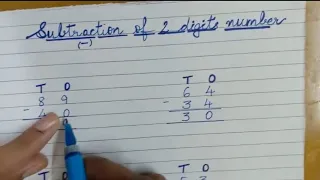 Subtraction of 2 digits number
(-)
T O
8 9
- 4 0
T O
6 4
- 3 4
3 0
T O
T O
5 3